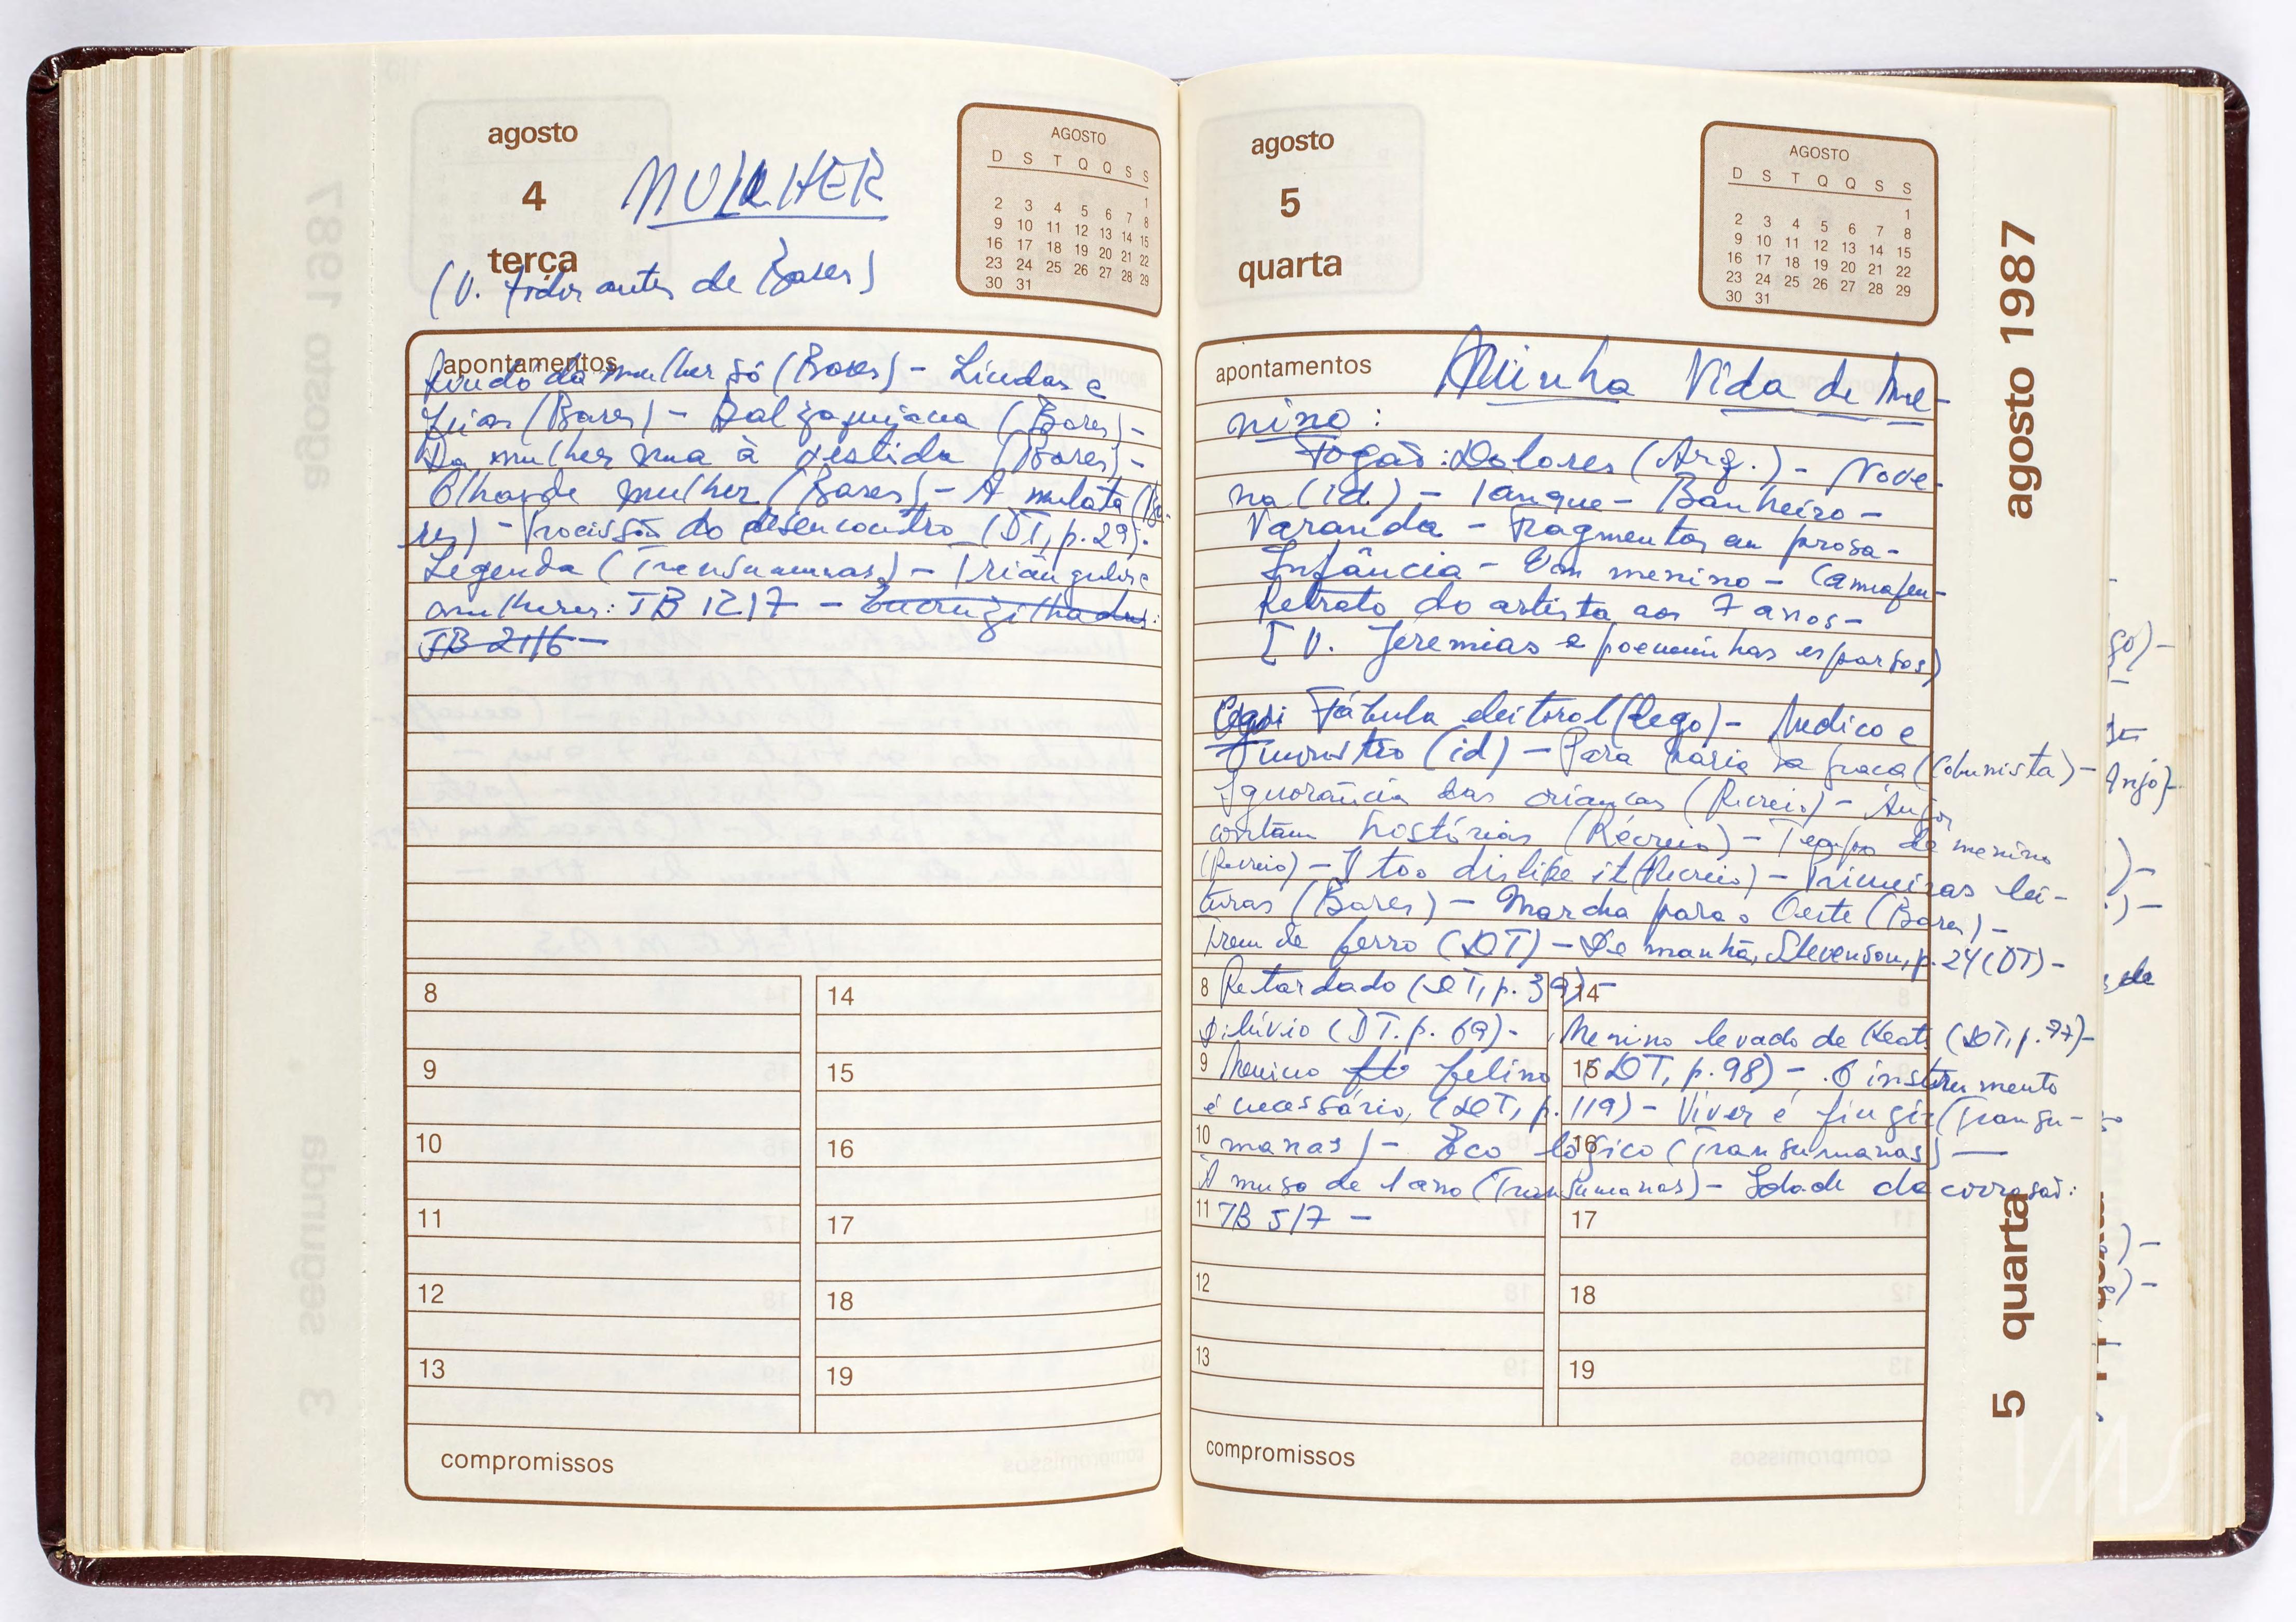 agosto
4
terça
MULHER
(V. antes de Bares)
AGOSTO
D S T Q Q S S
1
2 3 4 5 6 7 8
9 10 11 12 13 14 15
16 17 18 19 20 21 22
23 24 25 26 27 28 29
30 31
apontamentos
da mulher só (Bares) - Lindas e
(Bares) - Balzaquiana (Bares) -
Da mulher nua à vestida (Bares) -
Olhar de mulher (Bares) - A mulata (Ba-
res) - Procissão do desencontro (DT, p. 29).
Legenda (Transumanas) - Triângulos e
mulheres: JB 12/7 - Encruzilhadas:
JB 21/6 -
8 14
9 15
10 16
11 17
12 18
13 19
compromissos
agosto
5
quarta
AGOSTO
D S T Q Q S S
1
2 3 4 5 6 7 8
9 10 11 12 13 14 15
16 17 18 19 20 21 22
23 24 25 26 27 28 29
30 31
agosto 1987
apontamentos
Minha Vida de Me-
nino:
Fogão: Dolores (Arq.) - Nove-
na (id) - Tanque - Banheiro -
Varanda - Fragmentos em prosa -
Infância - Um menino - Camafeu -
Retrato do artista aos 7 anos -
[V. Jeremias e poeminhas esparsos)
Fábula eleitoral (Cego) - Médico e
monstro (id) - Para Maria da Graça (Colunista) -
Ignorância das crianças (Recreio) - Anjos
contam histórias (Recreio) - Tempo de menino
(Recreio) - I too dislike it (Recreio) - Primeiras lei-
turas (Bares) - Marcha para o Oeste (Bares) -
Trem de ferro (DT) - De manhã, Stevenson, p. 24 (DT) -
8 Retardado (DT, p. 39) - 14
Dilúvio (DT. p. 69) - Menino levado de Keats (DT, p. 77) -
9 Menino felino 15 (DT, p. 98) - O instrumento
é necessário, (DT, p. 119) - Viver é fingir (Transu-
10 manas) - Eco lógico (Transumanas) - 16
A musa de 1 ano (Transumanas) - Idade da corrosão:
11 JB 5/7 - 17
12 18
13 19
compromissos
5 quarta
IMS